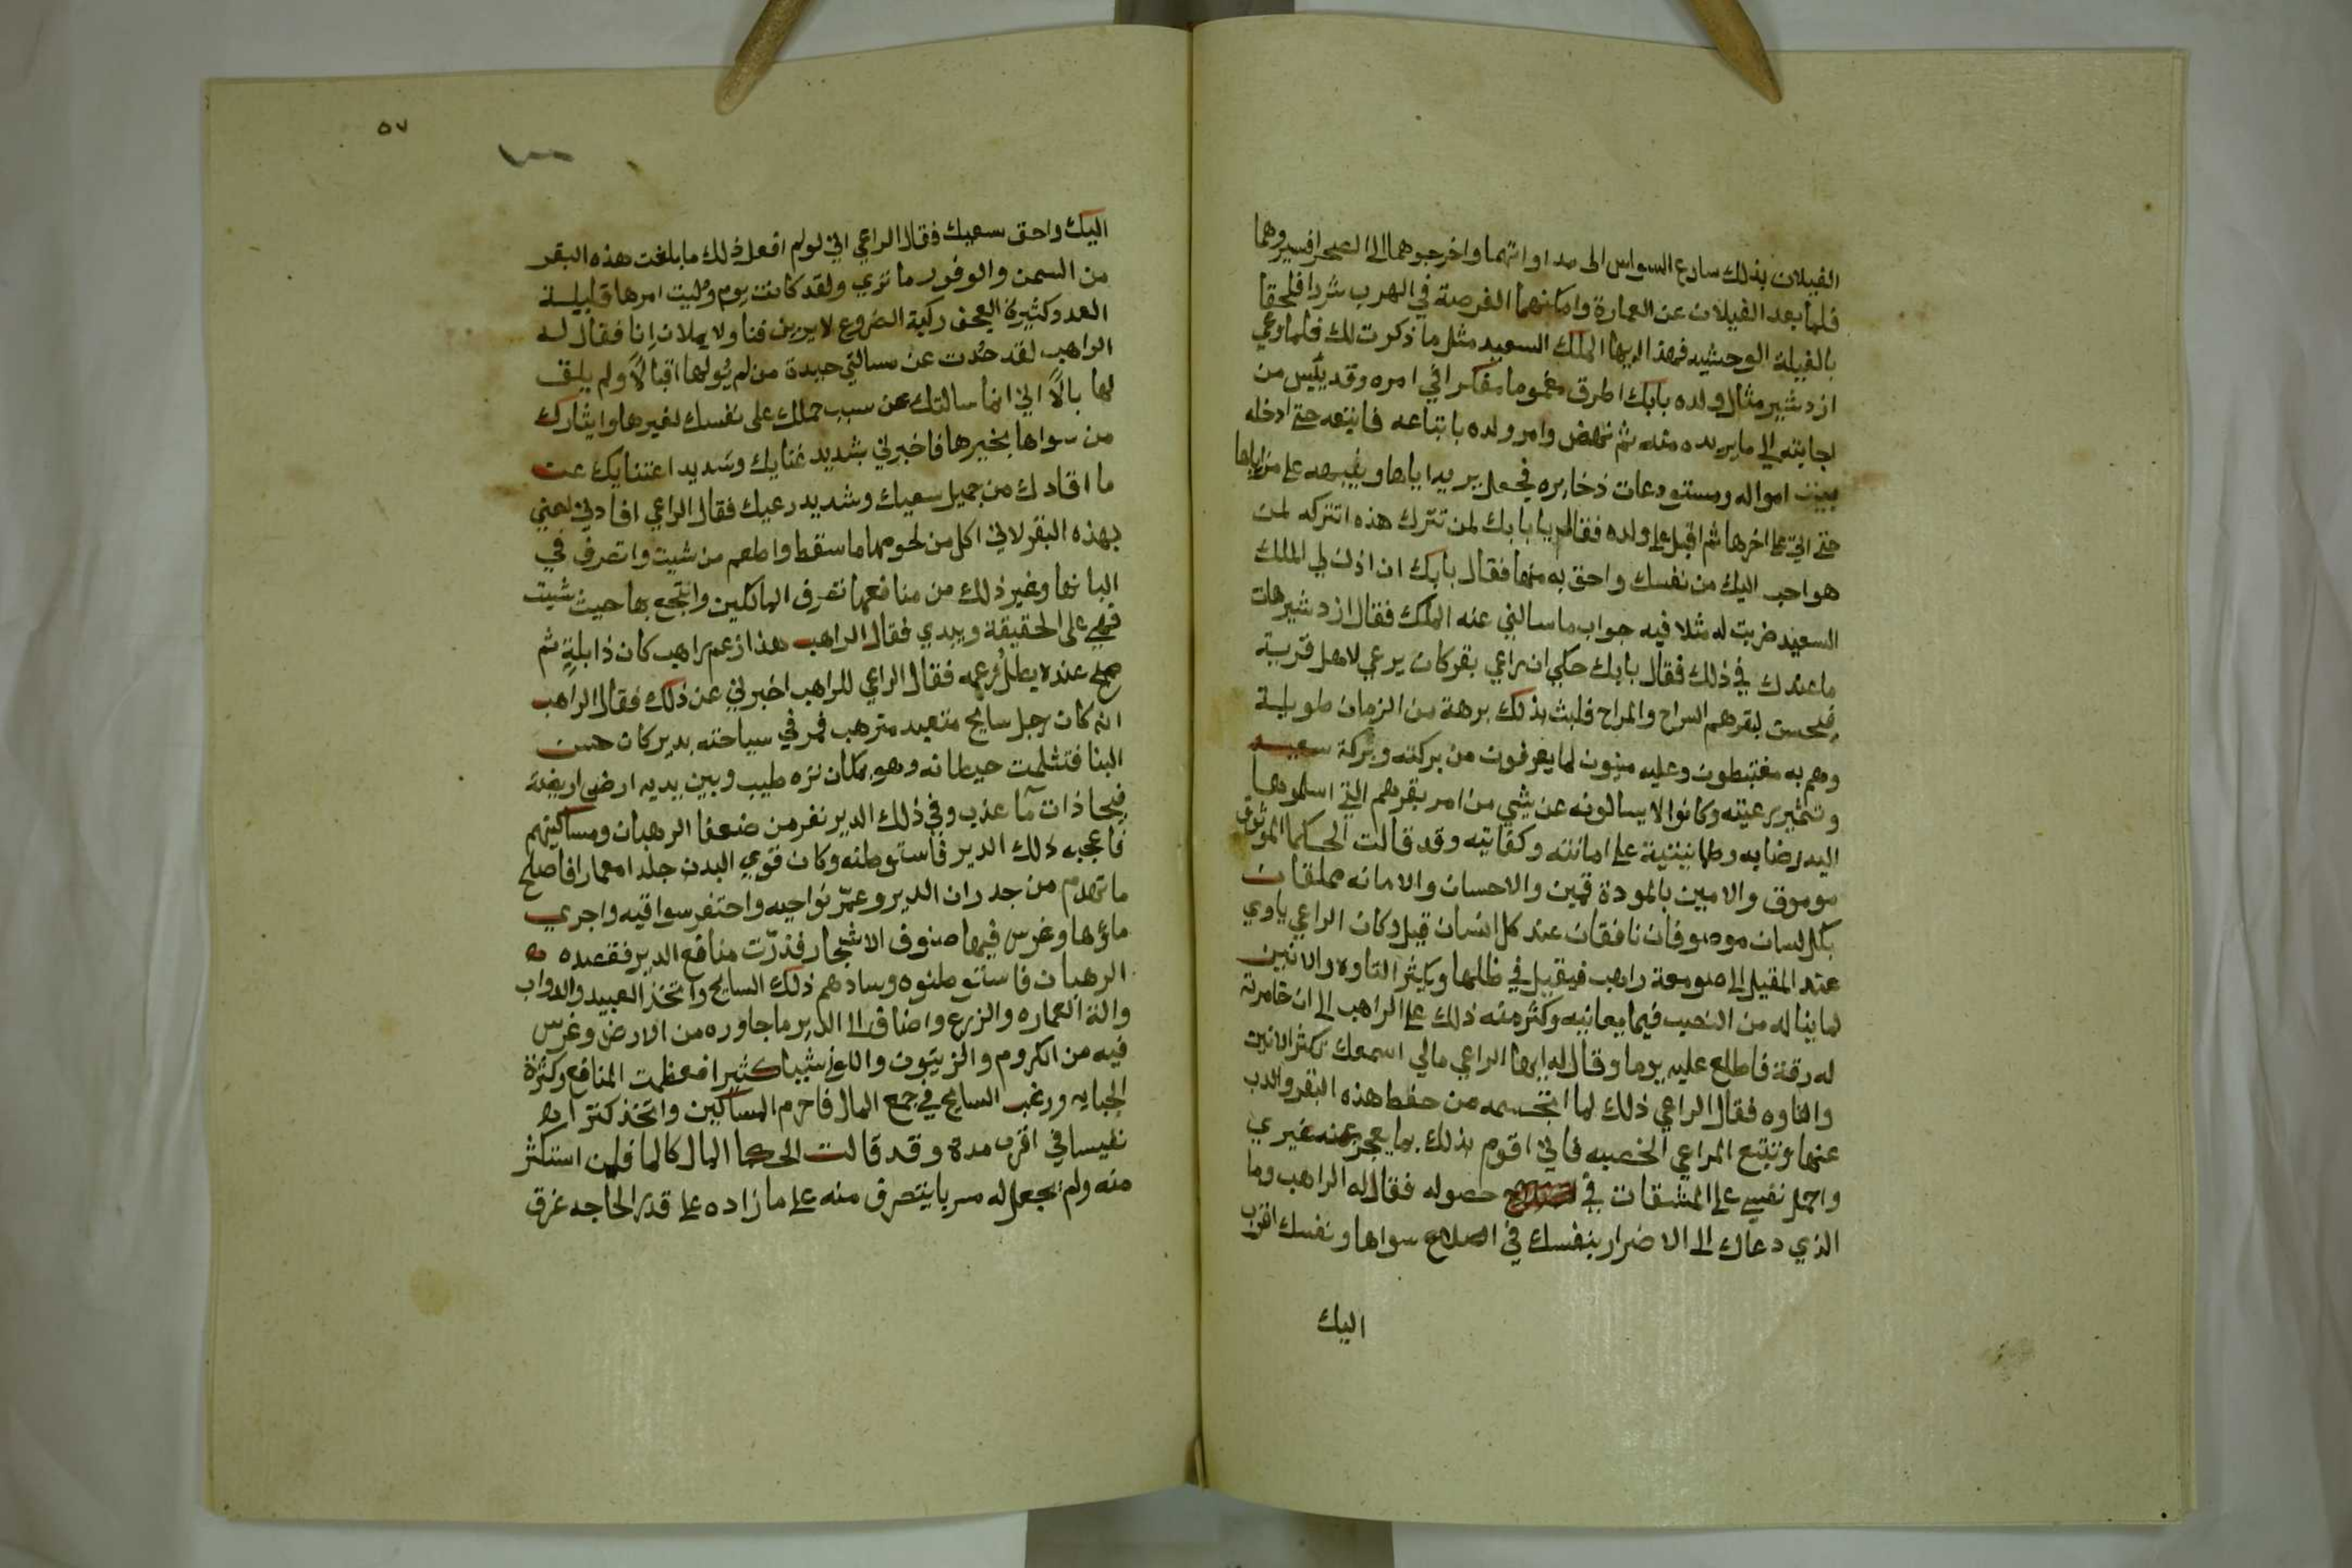 الفيلان بذلك سارع السواس الى مداواتهما واخرجوهما الى الصحرا فسيروهما
فلما بعد الفيلان عن العمارة وامكنهما الفرصة في الهرب شردا فلحقا
بالفيلة الوحشيه فهذا ايها الملك السعيد مثل ما ذكرت لك فلما وعي
ازدشير مثال ولده بابك اطرق مغموما مفكرا في امره وقد يئس من
اجابته الى ما يريده منه ثم نهض وامر ولده باتباعه فاتبعه حتى ادخله
بيوت امواله ومستودعات ذخايره فجعل يريه اياها
حتى اتى على اخرها ثم اقبل على ولده فقال يا بابك لمن تترك هذه اتتركه لمن
هو احب اليك من نفسك واحق به منها فقال بابك ان اذن لي الملك
السعيد ضربت له مثلا فيه جواب ما سالني عنه الملك فقال ازدشير هات
ما عندك في ذلك فقال بابك حكي ان راعي بقر كان يرعي لاهل قرية
فيحسن لبقرهم السراح والمراح فلبث بذلك برهة من الزمان طويلة
وهم به مغتبطون وعليه مثنون لما يعرفون من بركته وبركة سعيه
وتثمير رعيته وكانوا لا يسالونه عن شي من امر بقرهم التي اسلموها
اليه رضا به وطمانينية على امانته وكفايته وقد قالت الحكما الموثوق
موموق والامين بالمودة قمين والاحسان والامانه معلقان
بكل لسان موصوفان نافقان عند كل انسان قيل وكان الراعي ياوي
عند المقيل الى صومعة راهب فيقيل في ظلها ويكثر التاوه والانين
لما يناله من النصب فيما يعانيه وكثر منه ذلك على الراهب الى ان خامرته
له رقة فاطلع عليه يوما وقال له ايها الراعي مالي اسمعك تكثر الانين
والتاوه فقال الراعي ذلك لما اتجسمه من حفظ هذه البقر والذب
عنها وتتبع المراعي الخصبه فاني اقوم بذلك بما يعجز عنه غيري
واحمل نفسي على المشقات في حصوله فقال له الراهب وما
الذي دعاك الى الاضرار بنفسك في اصلاح سواها ونفسك اقرب
اليك
٥٧
اليك واحق بسعيك فقال الراعي اني لو لم افعل ذلك ما بلغت هذه البقر
من السمن والوفور ما تري ولقد كانت يوم وليت امرها قليلة
العدد كثيرة العجف ركية الضروع لا يرين فنا ولا يملان إنا فقال له
الراهب لقد حُدت عن مسالتي حيدة من لم يُولها اقبالاً ولم يلق
لها بالاً اني انما سالتك عن سبب حملك على نفسك لغيرها وايثارك
من سواها بخيرها فاخبرني بشديد غنايك وسديد اعتنايك عن
ما افادك من جميل سعيك وشديد رعيك فقال الراعي افادني
بهذه البقر لاني اكل من لحومها ما سقط واطعم من شيت واتصرف في
البانها وغير ذلك من منافعها تصرف المالكين وانتجع بها حيث شيت
فهي على الحقيقة وبيدي فقال الراهب هذا زعم راهب كان ذا بله ثم
صح عنده بطل زعمه فقال الراعي للراهب اخبرني عن ذلك فقال الراهب
انه كان رجل سايح متعبد مترهب فمر في سياحته بدير كان حسن
البنا فتثلمت حيطانه وهو بمكان نزه طيب وبين يديه ارض اريضة
فيحا ذات مآ عذب وفي ذلك الدير نفر من ضعفا الرهبان ومساكينهم
فاعجبه ذلك الدير فاستوطنه وكان قوي البدن جلدا معمارا فاصلح
ما تهدم من جدران الدير وعمّر نواحيه واحتفر سواقيه واجري
ماؤها وغرس فيها صنوف الاشجار فدرّت منافع الدير فقصده
الرهبان فاستوطنوه وسادهم ذلك السايح واتخذ العبيد والدواب
والة العماره والزرع واضاف الى الدير ما جاوره من الارض وغرس
فيه من الكروم والزيتون واللوز شيا كثيرا فعظمت المنافع وكثرة
الجبايه ورغب السايح في جمع المال فاحرم المساكين واتخذ كنزا
نفيسا في اقرب مدة وقد قالت الحكما المال كالما فمن استكثر
منه ولم يجعل له مسربا يتصرف منه على ما زاده على قدر الحاجه غرق